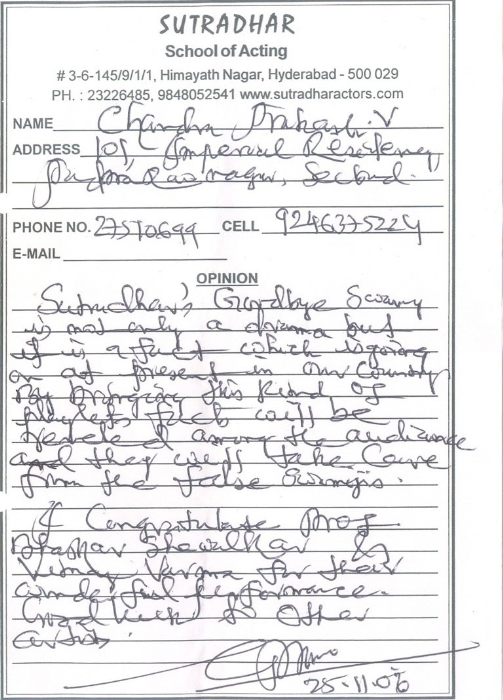 SUTRADHAR
School of Acting
# 3-6-145/9/1/1, Himayath Nagar, Hyderabad - 500 029
PH. : 23226485, 9848052541 www.sutradharactors.com
NAME Chandra Prakash.V
ADDRESS 101, Imperial Residency
Padmarao nagar, Secbad.
PHONE NO. 27510699 CELL 9246375229
E-MAIL
OPINION
Sutradhar's Goodbye Swamy
is not only a drama but
it is a fact which is going
on at present in our Country
By bringing this kind of
playlets, fact will be
revealed among the audiance
and they will take Care
from the false Swamijis.
I Congratulate Prof
Bhaskar Shewalkar &
Varma for their
wonderful performance.
Good luck to Other
artists.
28-11-06